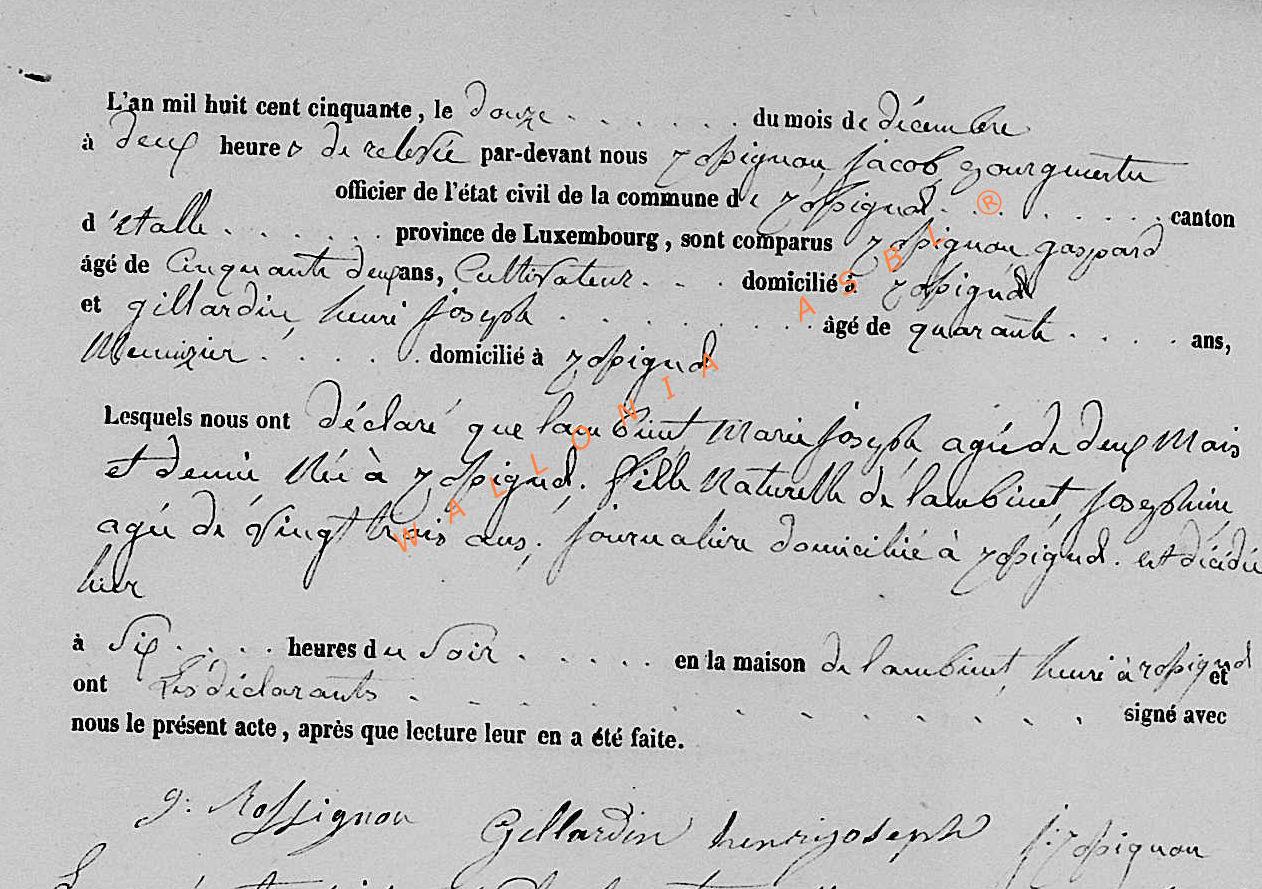 L'an mil huit cent cinquante, le douze . . . . . . du mois de décembre
à deux heures de relevée par-devant nous rossignon, jacob, bourgmestre
officier de l'état civil de la commune de rossignol . . . . . . . canton
d'étalle . . . . . . province de Luxembourg, sont comparus rossignon gaspard
âgé de Cinquante deux ans, Cultivateur . . . domicilié à rossignol
et gillardin, henri joseph . . . . . . . . . . âgé de quarante . . . . ans,
Menuizier . . . . . . domicilié à rossignol
Lesquels nous ont déclaré que lambinet Marie joseph, agée de deux Mois
et demie Née à rossignol. fille Naturelle de lambinet, josephine
agée de vingt trois ans, journalière domiciliée à rossignol. est décédée
hier
à Six . . . . heures du Soir . . . . . en la maison de lambinet, henri à rossignol et
ont Les déclarants . . . . . . . . . . . signé avec
nous le présent acte, après que lecture leur en a été faite.
g: Rossignon Gillardin henri joseph j: rossignon
WALLONIA ASBL ®